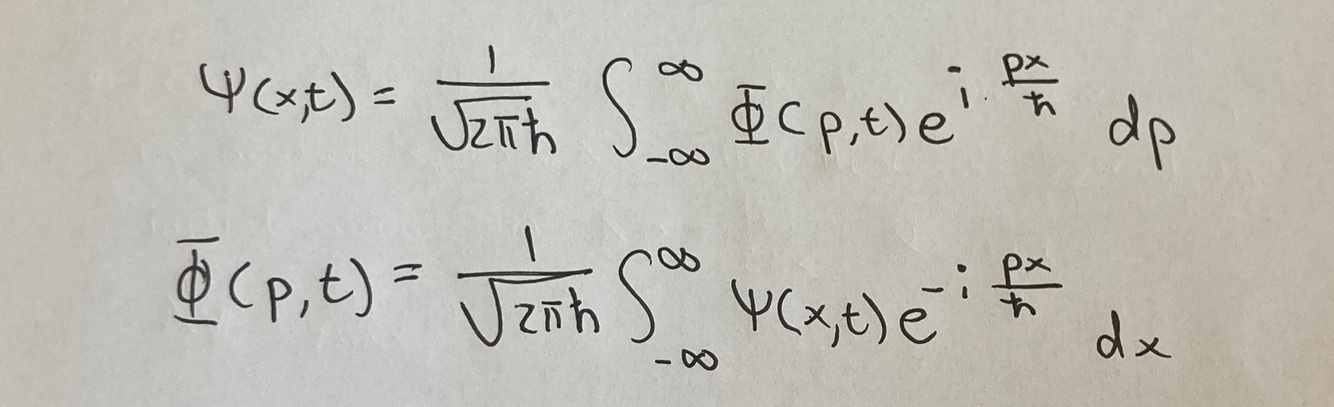 Ψ(x,t) = \frac{1}{\sqrt{2πħ}} \int_{-∞}^{∞} Φ(p,t) e^{i \frac{px}{ħ}} dp
Φ(p,t) = \frac{1}{\sqrt{2πħ}} \int_{-∞}^{∞} Ψ(x,t) e^{-i \frac{px}{ħ}} dx